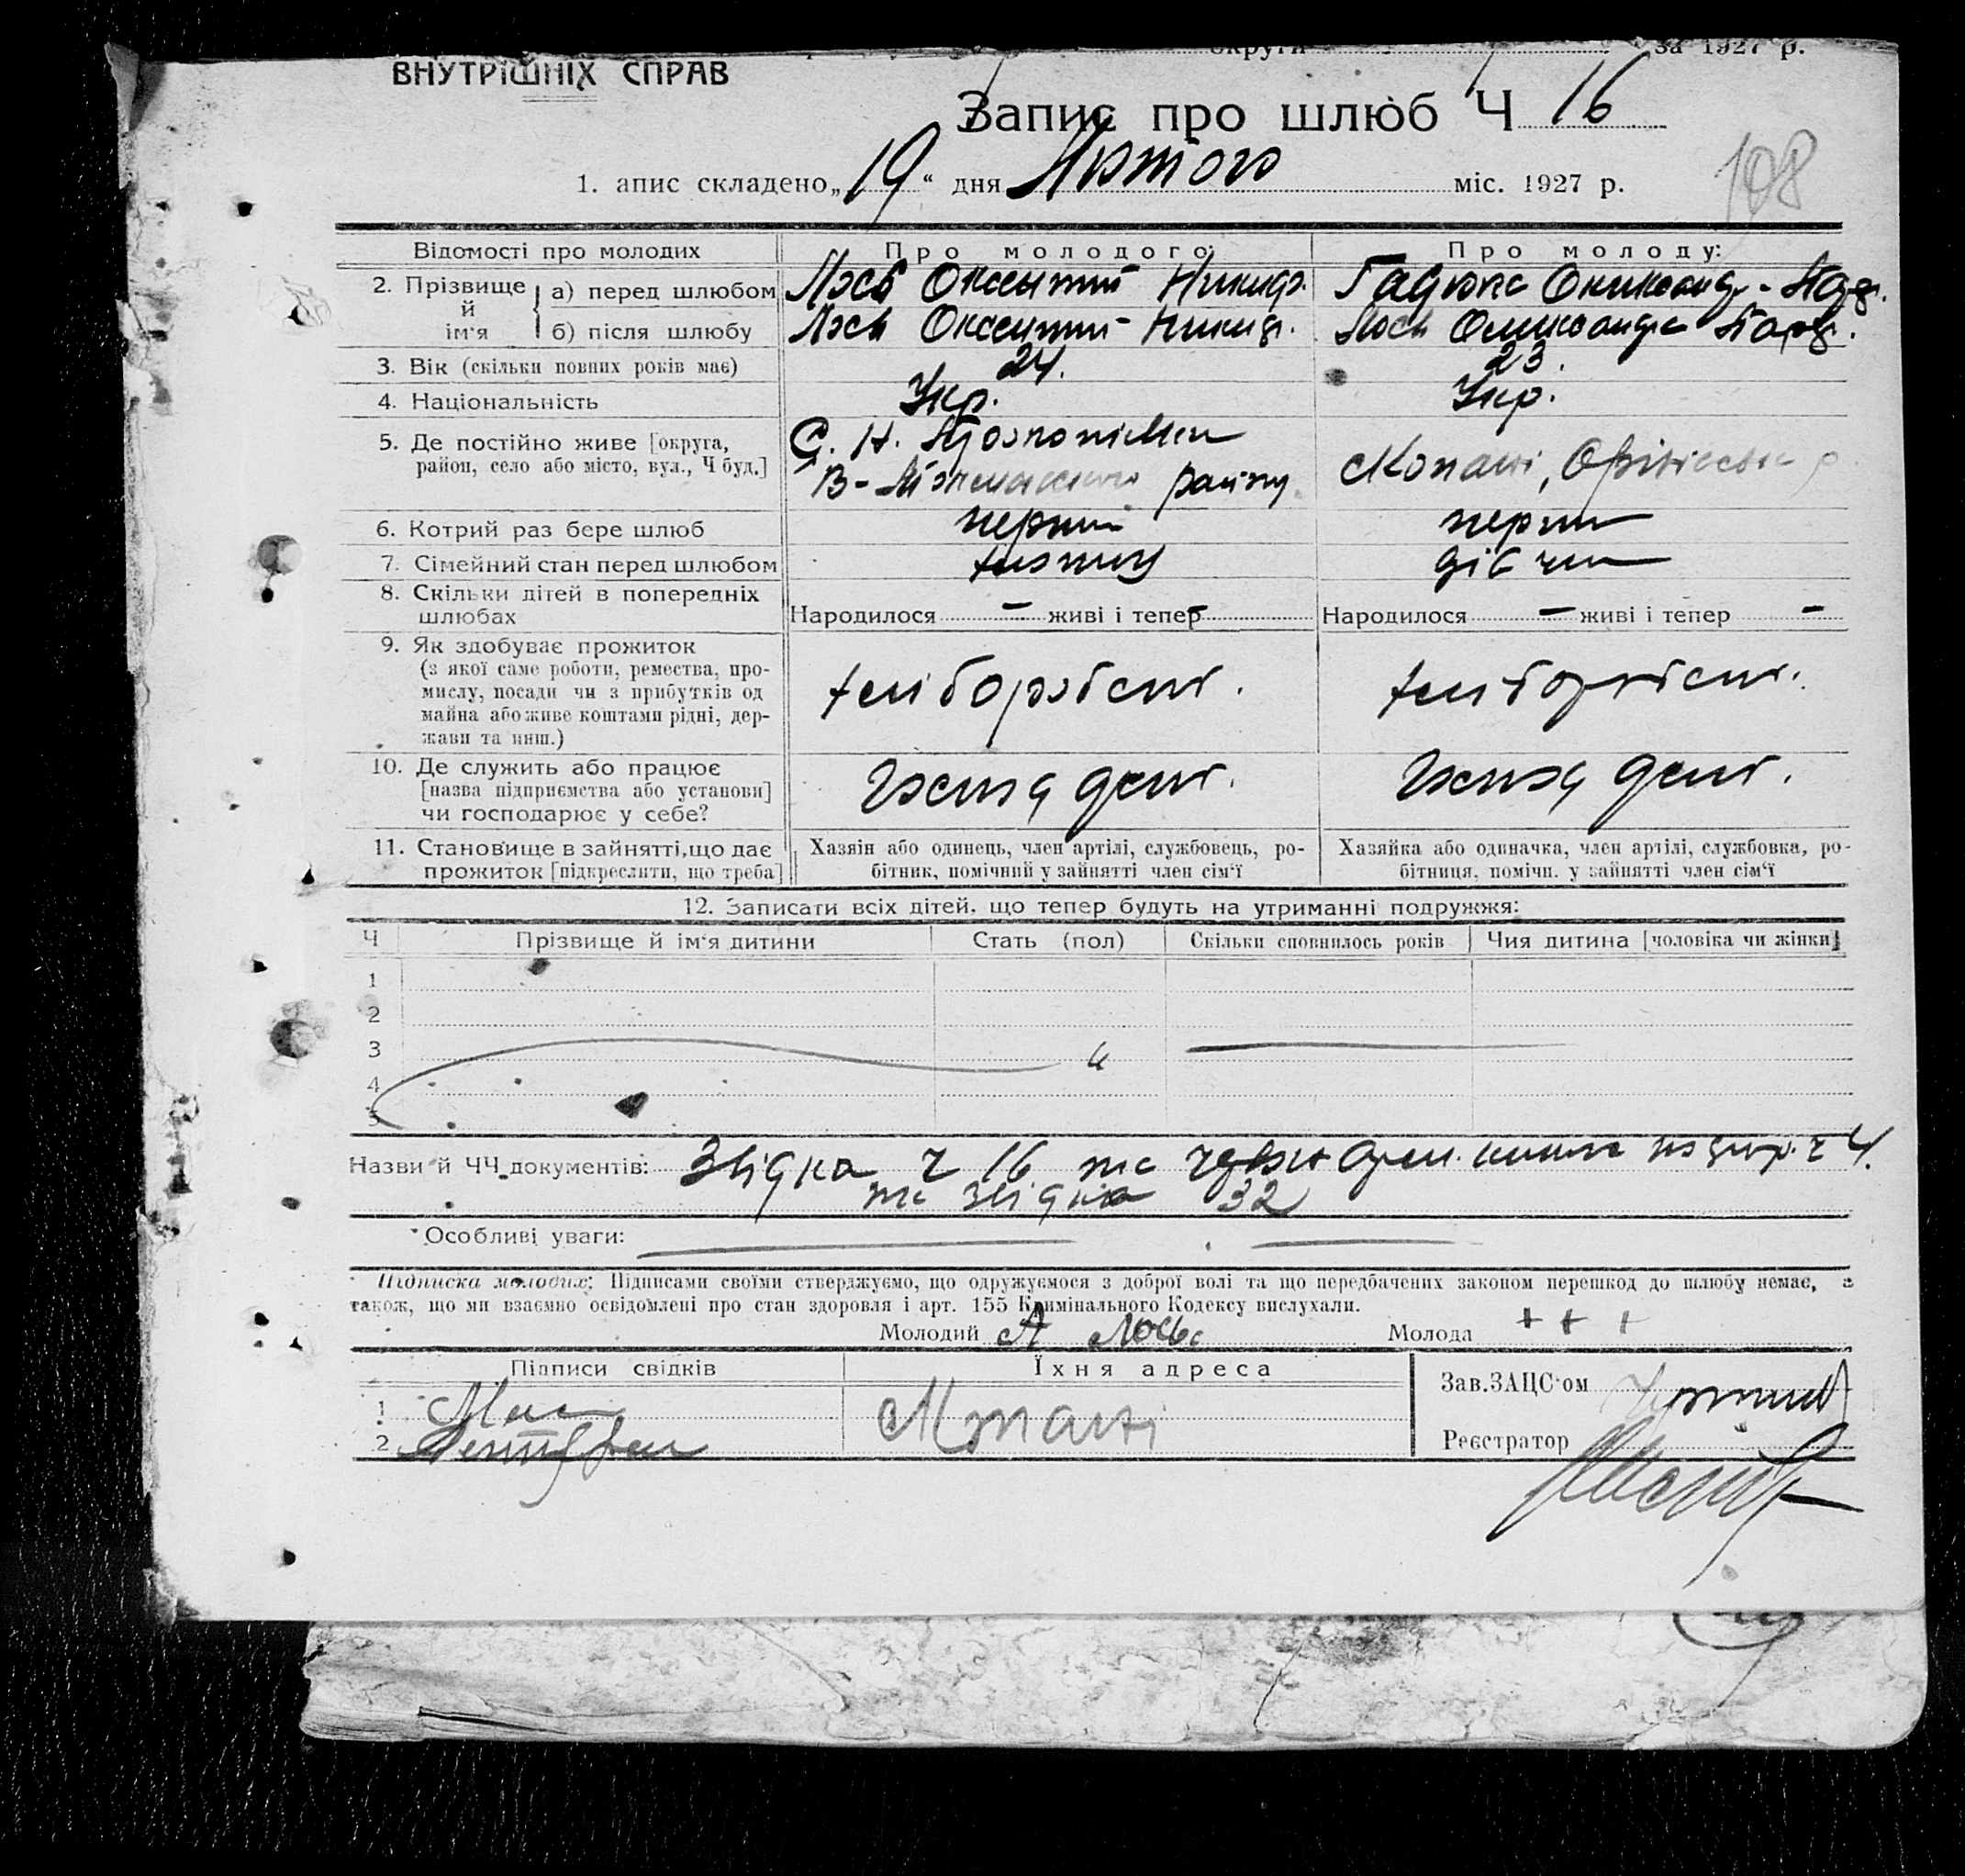 округи за 1927 р.
ВНУТРІШНІХ СПРАВ
Запис про шлюб Ч 16
108
1. апис складено „19“ дня Лютого міс. 1927 р.
Відомості про молодих Про молодого: Про молоду:
2. Прізвище й ім'я
а) перед шлюбом Лось Оксентий Никиф. Гадюка Олександр.
б) після шлюбу Лось Оксентий Никиф. Лось Олександра
3. Вік (скільки повних років має) 24. 23.
4. Національність Укр. Укр.
5. Де постійно живе [округа, район, село або місто, вул., Ч буд.]
С. Н. району Копані, Оріхівськ р
6. Котрий раз бере шлюб перший перший
7. Сімейний стан перед шлюбом дівчина
8. Скільки дітей в попередніх шлюбах
Народилося – живі і тепер – Народилося – живі і тепер –
9. Як здобуває прожиток
(з якої саме роботи, ремества, про-
мислу, посади чи з прибутків од
майна або живе коштами рідні, дер-
жави та инш.)
хліборобст. хліборобст.
10. Де служить або працює
[назва підприємства або установи]
чи господарює у себе?
11. Становище в зайнятті, що дає
прожиток [підкреслити, що треба]
Хазяін або одинець, член артілі, службовець, ро-
бітник, помічний у зайнятті член сім'ї
Хазяйка або одиначка, член артілі, службовка, ро-
бітниця, помічн. у зайнятті член сім'ї
12. Записати всіх дітей, що тепер будуть на утриманні подружжя:
Ч Прізвище й ім'я дитини Стать (пол) Скільки сповнилось років Чия дитина [чоловіка чи жінки]
1
2
3
4
5
Назви й ЧЧ документів: Звідка ч 16 та ч 4.
та звідка 32
Особливі уваги:
Підписка молодих: Підписами своїми стверджуємо, що одружуємося з доброї волі та що передбачених законом перешкод до шлюбу немає, а
також, що ми взаємно освідомлені про стан здоровля і арт. 155 Кримінального Кодексу вислухали.
Молодий А Лось Молода + + +
Підписи свідків Їхня адреса
Зав.ЗАЦС'ом
1
2
Копані
Реєстратор